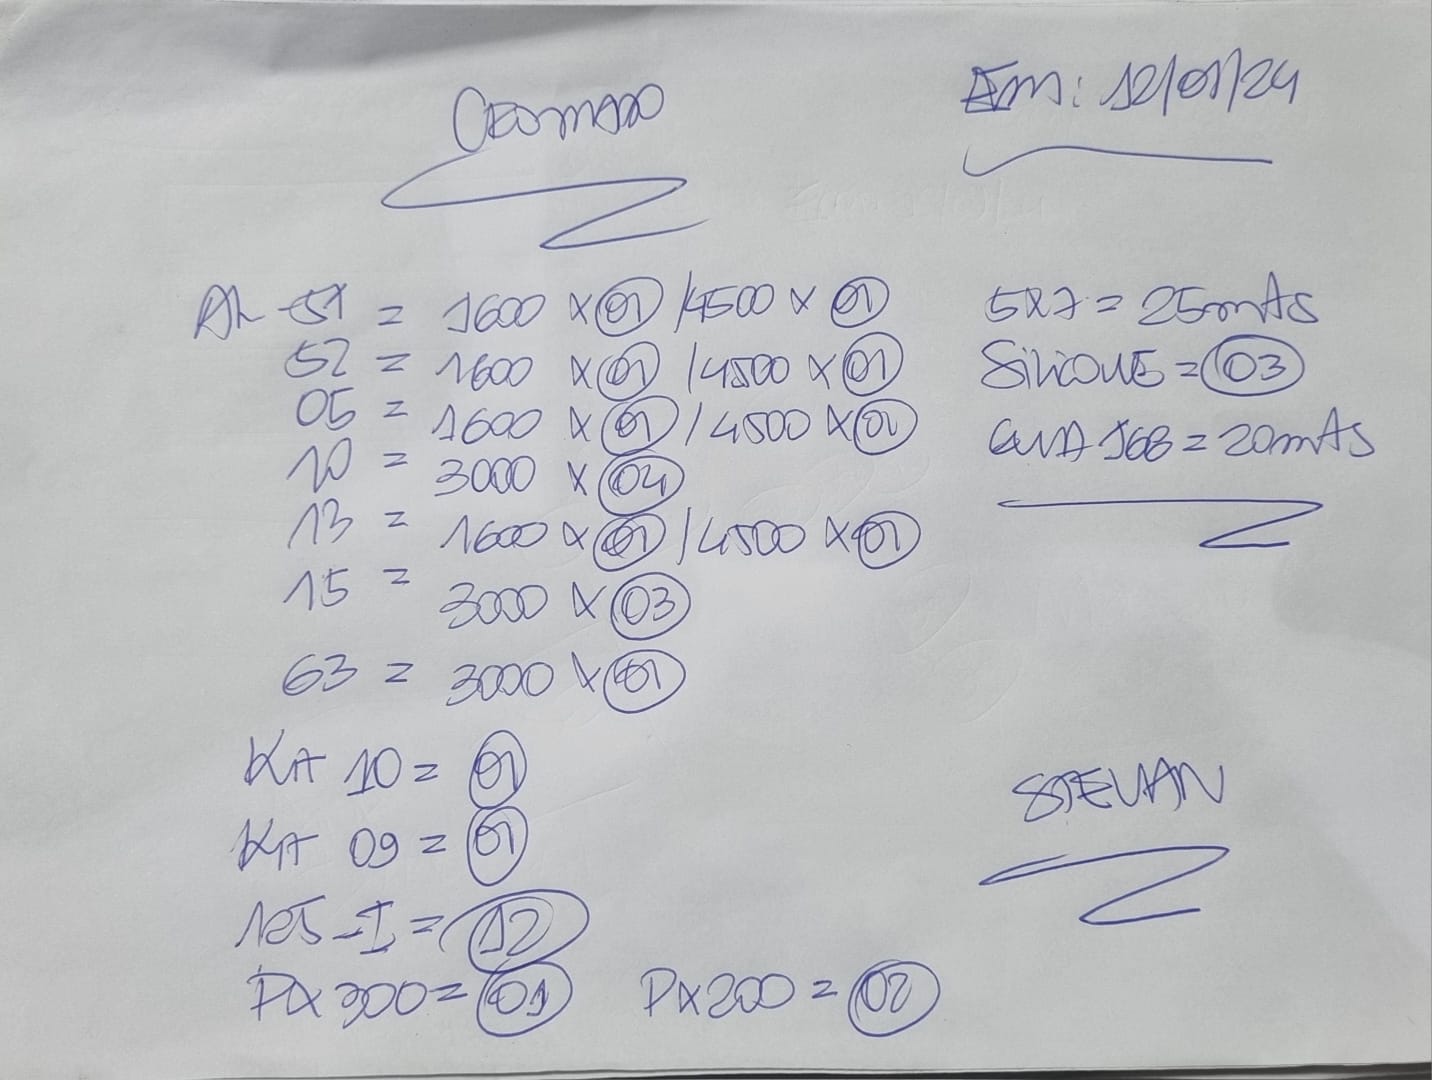 Em: 12/01/24
AL-51 = 1600 x 01 / 4500 x 01
52 = 1600 x 01 / 4500 x 01
05 = 1600 x 01 / 4500 x 01
10 = 3000 x 04
13 = 1600 x 01 / 4500 x 01
15 = 3000 x 03
63 = 3000 x 01
KA 10 = 01
KA 09 = 01
125-I = 12
PX 300 = 01 PX 200 = 02
5x7 = 25mts
SiliCONE = 03
GUA 168 = 20mts
STEVAN